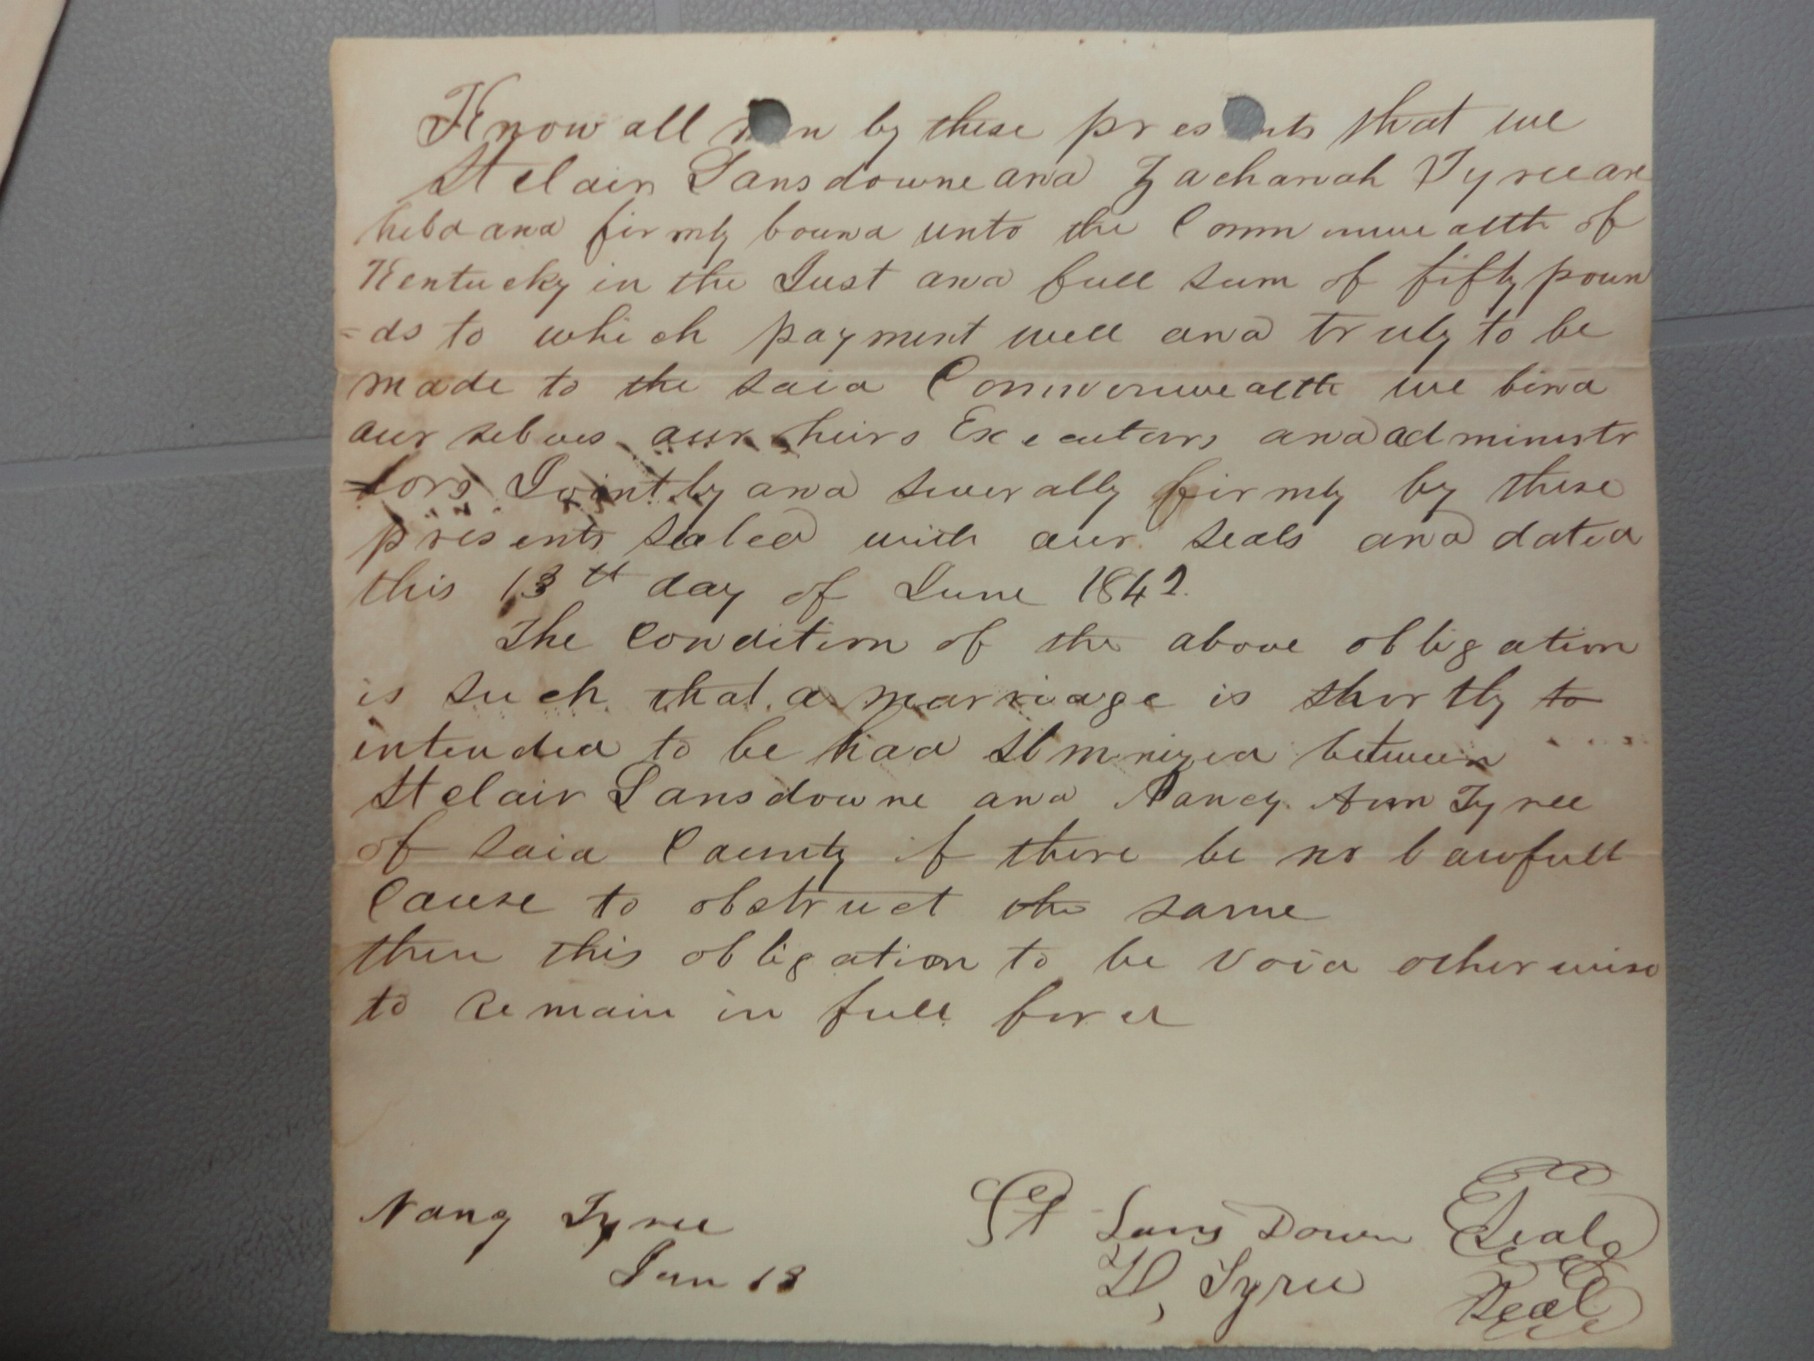 Know all men by these presents that we
St clair Lansdowne and Zachariah Tyree are
held and firmly bound unto the Commonwealth of
Kentucky in the Just and full sum of fifty poun
=ds to which payment well and truly to be
made to the said Commonwealth we bind
our selves our heirs Executors and administr
tors Jointly and severally firmly by these
presents sealed with our seals and dated
this 13th day of June 1842.
The Condition of the above obligation
is such that a marriage is shortly to
intended to be had Solmnized between
St clair Lansdowne and Nancy Ann Tyree
of said County if there be no lawfull
Cause to obstruct the same
then this obligation to be void otherwise
to remain in full force
Nancy Tyree
Jun 13
St Lans Down Seal
Z, Tyree Seal